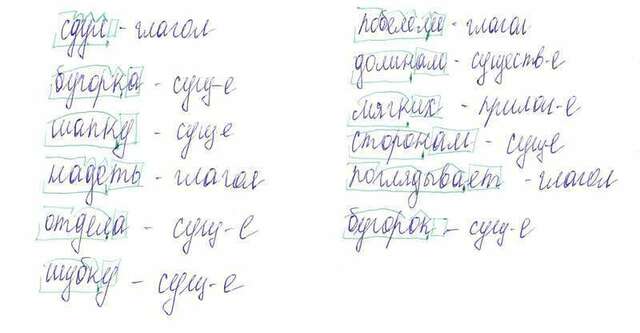 сдул - глагол
бугорка - сущ-е
шапку - сущ-е
надеть - глагол
отдела - сущ-е
шубку - сущ-е
побелели - глагол
долинам - существ-е
мягких - прилаг-е
сторонам - сущ-е
поглядывает - глагол
бугорок - сущ-е